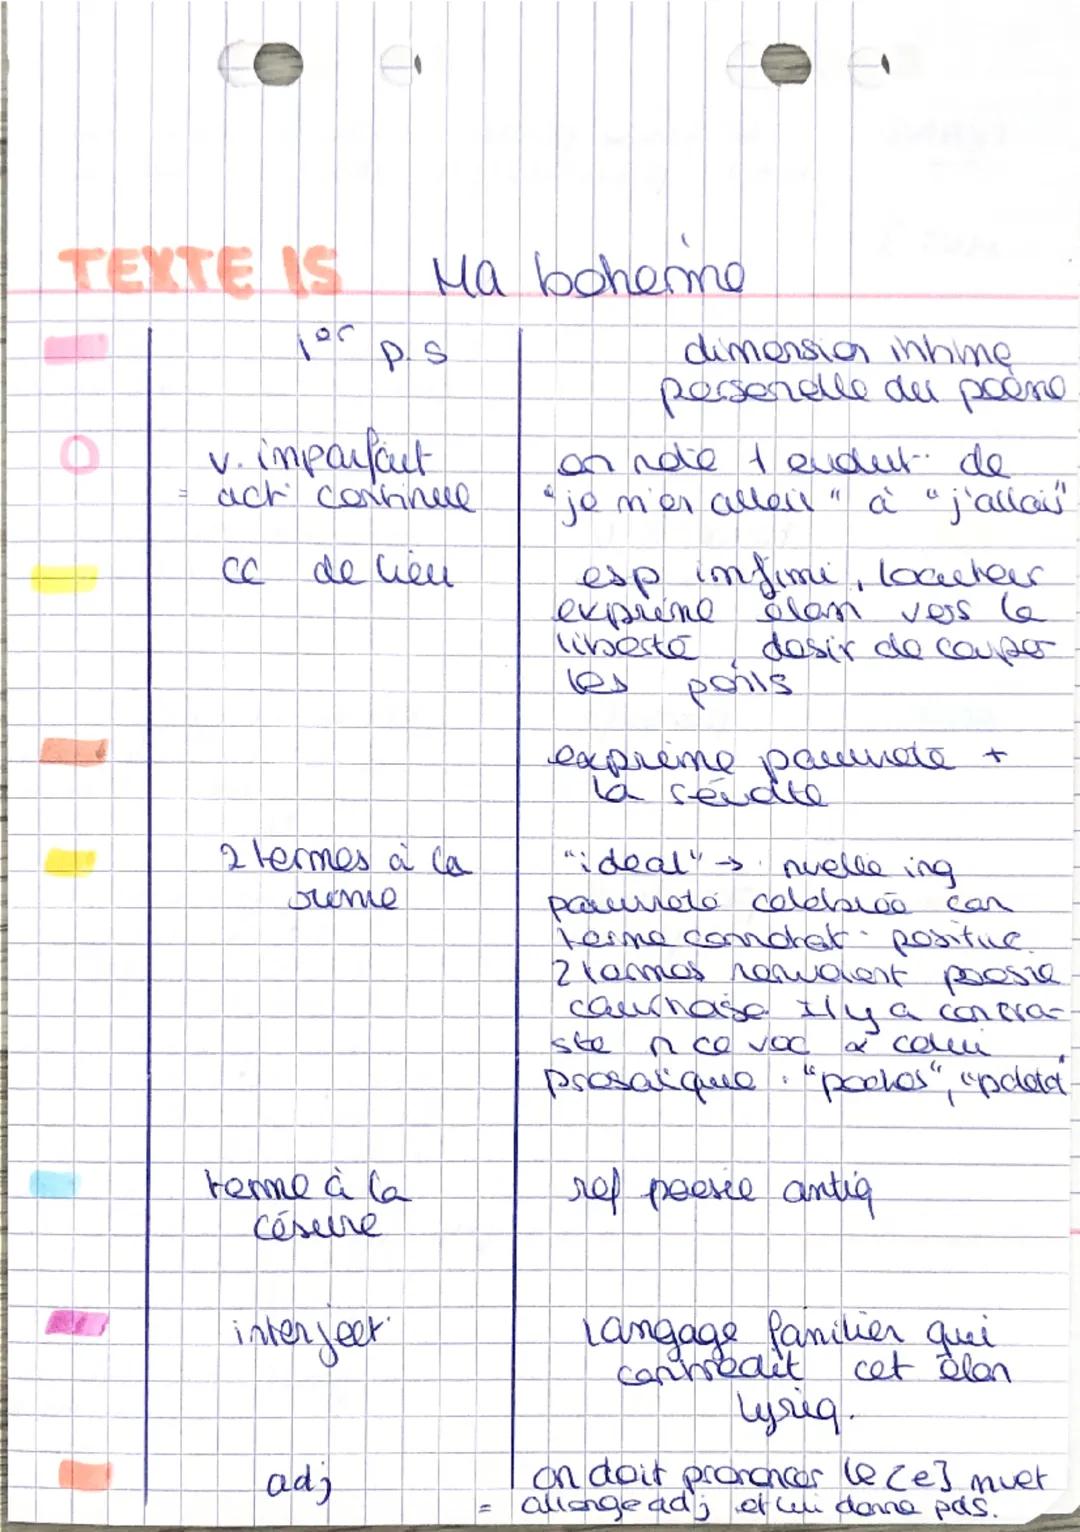 TEXTE 15 Ma boheime
1er p.s
dimension intime
personelle du poème
v. imparfait
= act° continue
on note 1 evolut° de
"je m'en allais" à "j'allais"
cc de lieu
esp infimi, locuteur
exprime élan vers la
liberté, desir de couper
les ponts
exprime pauvreté +
la
2 termes à la
rime
"ideal" → nvelle img
pauvreté célébrée car
terme connotat° positive.
2 termes renvoient poesie
Il y a contra-
ste n ce voc & celui
prosaïque : "poches", "paletot
terme à la
césure
ref poesie antiq
interject°
langage familier qui
contredit cet élan
lyriq.
adj
on doit prononcer le [e] muet
= allonge adj et lui donne pds.